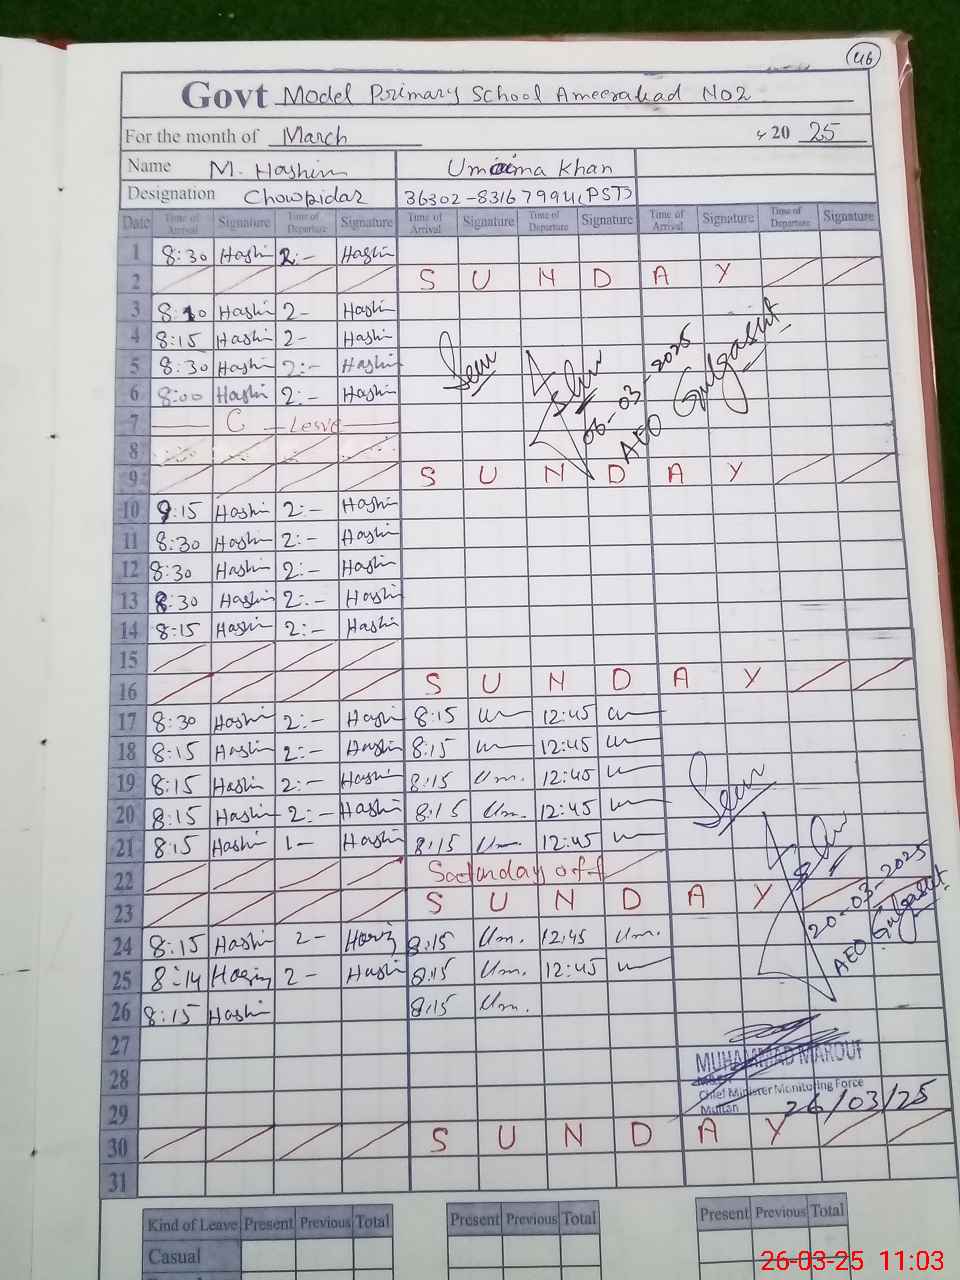 46
Govt Model Primary School Ameerabad No2
For the month of March 20 25
Name M. Hashim Umaima Khan
Designation Chowkidar 36302-83167994 (PST)
Date Time of Arrival Signature Time of Departure Signature Time of Arrival Signature Time of Departure Signature Time of Arrival Signature Time of Departure Signature
1 8:30 Hashi 2:- Hashi
2 S U N D A Y
3 8:10 Hashi 2- Hashi
4 8:15 Hashi 2- Hashi
5 8:30 Hashi 2:- Hashi
6 8:00 Hashi 2:- Hashi
Seen
06-03-2025
AEO Gulgasht
7 C Leave
8
9 S U N D A Y
10 9:15 Hashi 2:- Hashi
11 8:30 Hashi 2:- Hashi
12 8:30 Hashi 2:- Hashi
13 8:30 Hashi 2:- Hashi
14 8:15 Hashi 2:- Hashi
15
16 S U N D A Y
17 8:30 Hashi 2:- Hashi 8:15 12:45
18 8:15 Hashi 2:- Hashi 8:15 12:45
19 8:15 Hashi 2:- Hashi 8:15 Um. 12:45
20 8:15 Hashi 2:- Hashi 8:15 Um. 12:45
21 8:15 Hashi 1- Hashi 8:15 Um. 12:45
Seen
22 Saturday off
23 S U N D A Y
20-03-2025
AEO Gulgasht
24 8:15 Hashi 2- 8:15 Um. 12:45 Um.
25 8:14 2- Hashi 8:15 Um. 12:45
26 8:15 Hashi 8:15 Um.
27
MUHAMMAD MAROUF
28
Chief Minister Monitoring Force
29
Multan
26/03/25
30 S U N D A Y
31
Kind of Leave Present Previous Total Present Previous Total Present Previous Total
Casual
26-03-25 11:03